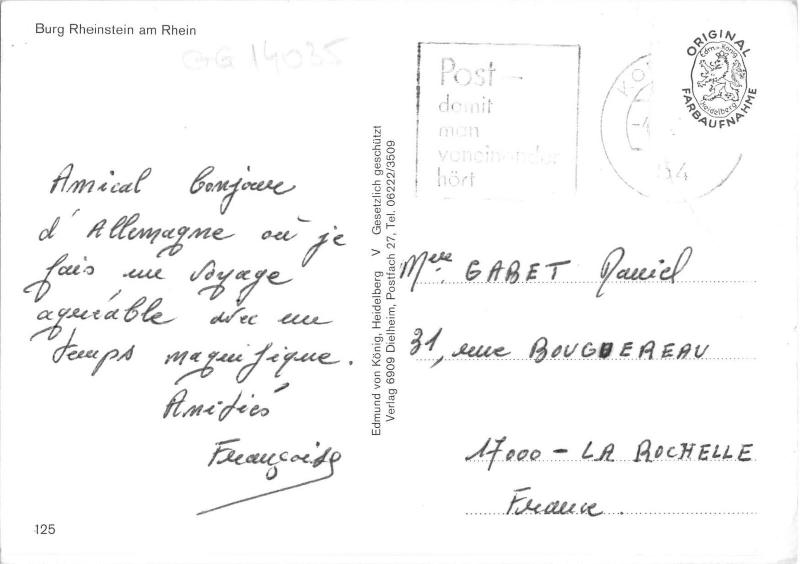 Burg Rheinstein am Rhein
GG 14035
Post –
damit
man
voneinander
hört
ORIGINAL
Edm. König
Heidelberg
FARBAUFNAHME
Amical bonjour
d'Allemagne où je
fais un voyage
agréable avec un
temps magnifique.
Amitiés
Françoise
Edmund von König, Heidelberg V Gesetzlich geschützt
Verlag 6909 Dielheim, Postfach 27, Tel. 06222/3509
GABET Daniel
31, rue BOUGUEREAU
17000 - LA ROCHELLE
France.
125